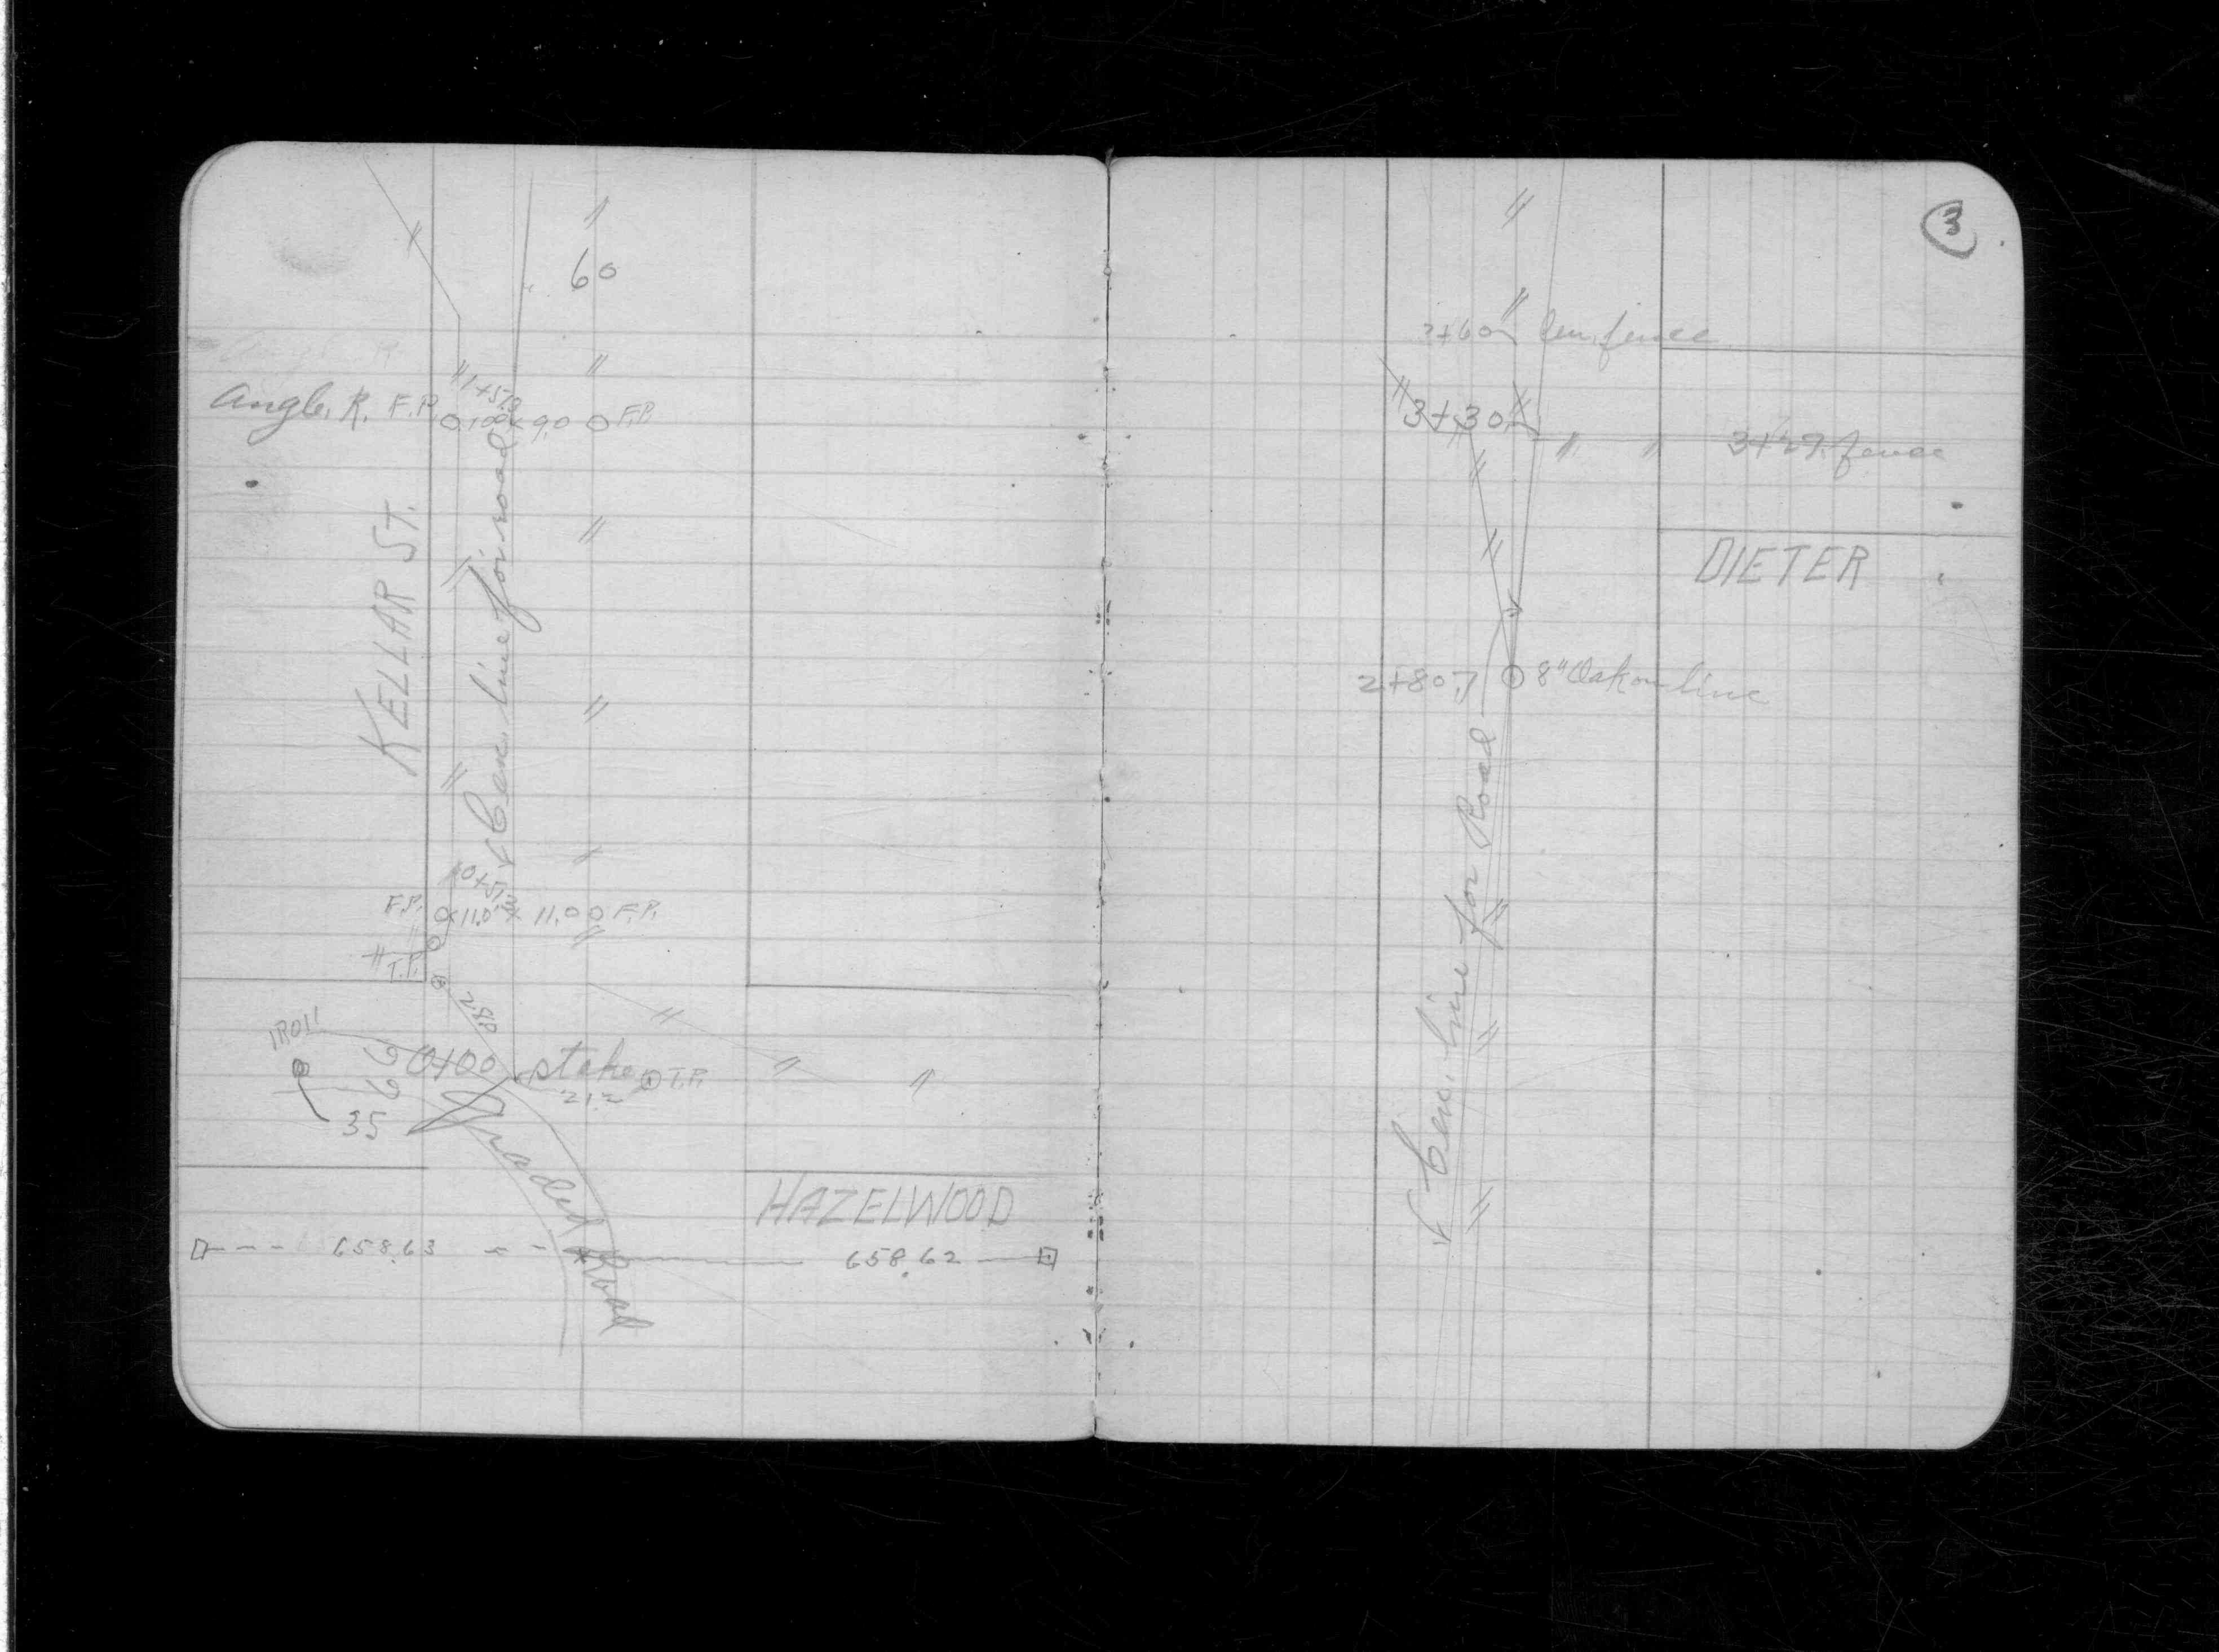 60
Angle. R. F.P. 1+51.0 10.0 x 9.0 F.P.
KELLAR ST.
Cen. line for road
0+51.0
F.P. 11.0 x 11.0 F.P.
T.P.
28.0
IRON
66 0+00 stake T.P.
21.2
35
Graded Road
HAZELWOOD
658.63 658.62
3
3+60 Cen. fence
3+30 3+29. fence
DIETER
2+80.7 8" Oak on line
Cen. line for Road